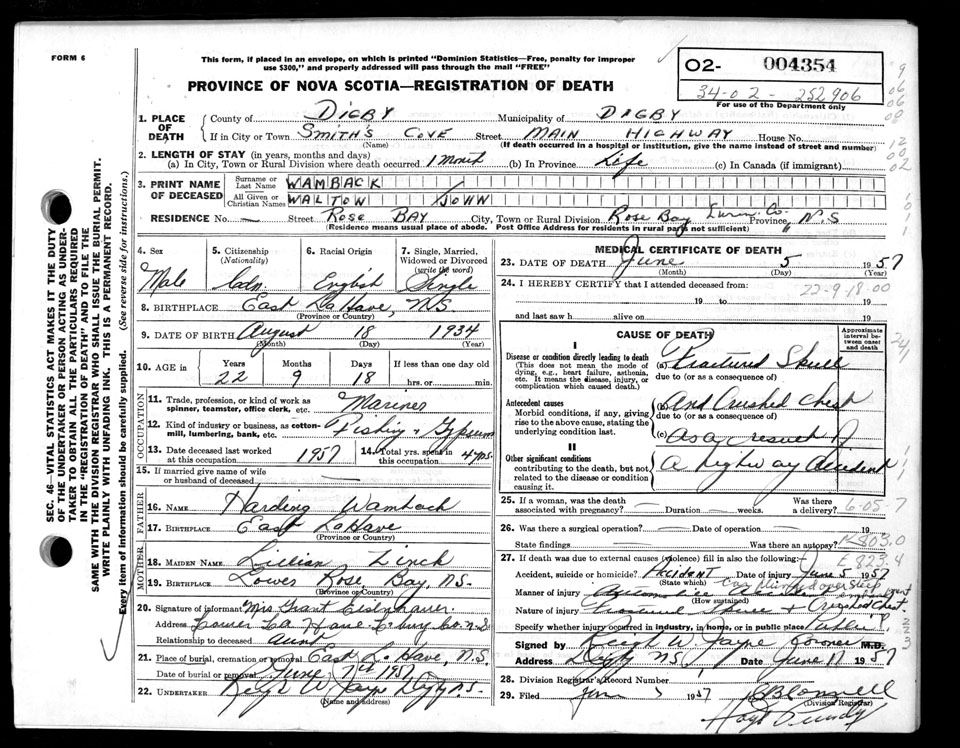 FORM 6
This form, if placed in an envelope, on which is printed "Dominion Statistics—Free, penalty for improper
use $300," and properly addressed will pass through the mail "FREE"
PROVINCE OF NOVA SCOTIA—REGISTRATION OF DEATH
02- 004354
34-02-252906
For use of the Department only
1. PLACE OF DEATH
County of DIGBY Municipality of DIGBY
If in City or Town SMITH'S COVE Street MAIN HIGHWAY House No.
(Name) (If death occurred in a hospital or Institution, give the name instead of street and number)
2. LENGTH OF STAY (in years, months and days)
(a) In City, Town or Rural Division where death occurred 1 Month (b) In Province Life (c) In Canada (if immigrant)
3. PRINT NAME OF DECEASED
Surname or Last Name WAMBACK
All Given or Christian Names WALTON JOHN
RESIDENCE No. — Street ROSE BAY City, Town or Rural Division Rose Bay Lun. Co. Province N.S
(Residence means usual place of abode. Post Office Address for residents in rural parts not sufficient)
4. Sex Male
5. Citizenship (Nationality) Cdn.
6. Racial Origin English
7. Single, Married, Widowed or Divorced (write the word) Single
8. BIRTHPLACE East LaHave, N.S
(Province or Country)
9. DATE OF BIRTH August 18 1934
(Month) (Day) (Year)
10. AGE in Years 22 Months 9 Days 18 If less than one day old hrs. or min.
OCCUPATION
11. Trade, profession, or kind of work as spinner, teamster, office clerk, etc. Mariner
12. Kind of industry or business, as cotton-mill, lumbering, bank, etc. Fishing & Gypsum
13. Date deceased last worked at this occupation 1957 14. Total yrs. spent in this occupation 4 yrs.
15. If married give name of wife or husband of deceased
FATHER
16. Name Harding Wamback
17. BIRTHPLACE East LaHave
(Province or Country)
MOTHER
18. MAIDEN NAME Lillian Zinck
19. BIRTHPLACE Lower Rose Bay, N.S.
(Province or Country)
20. Signature of informant Mrs Grant Eisenhauer
Address Lower La Have Co. N.S
Relationship to deceased aunt
21. Place of burial, cremation or removal East LaHave, N.S.
Date of burial or removal June 7th 1957
22. UNDERTAKER Digby N.S.
(Name and Address)
MEDICAL CERTIFICATE OF DEATH
23. DATE OF DEATH June 5 1957
(Month) (Day) (Year)
24. I HEREBY CERTIFY that I attended deceased from:
22-9-18-00
19 to 19
and last saw h alive on 19
CAUSE OF DEATH
Approximate interval between onset and death
I
Disease or condition directly leading to death
(This does not mean the mode of dying, e.g., heart failure, asthenia, etc. It means the disease, injury, or complication which caused death.)
(a) Fractured Skull
due to (or as a consequence of)
Antecedent causes
Morbid conditions, if any, giving rise to the above cause, stating the underlying condition last.
(b) And Crushed Chest
due to (or as a consequence of)
(c) as a result of
II
Other significant conditions contributing to the death, but not related to the disease or condition causing it.
a highway accident
25. If a woman, was the death associated with pregnancy? — Duration — weeks. Was there a delivery?
6-05-7
26. Was there a surgical operation? — Date of operation — 19
State findings Was there an autopsy?
N803.0
27. If death was due to external causes (violence) fill in also the following:
E823.4
Accident, suicide or homicide? Accident Date of injury June 5 1957
(State which)
Car plunged over steep embankment
Manner of injury Automobile Accident
(How sustained)
Nature of injury Fractured Skull & Crushed Chest
Specify whether injury occurred in industry, in home, or in public place Public
Signed by Coroner M.D.
Address Digby N.S. Date June 11 1957
28. Division Registrar's Record Number
29. Filed 1957
(Division Registrar)
SEC. 46—VITAL STATISTICS ACT MAKES IT THE DUTY
OF THE UNDERTAKER OR PERSON ACTING AS UNDER-
TAKER TO OBTAIN ALL THE PARTICULARS REQUIRED
IN THE "REGISTRATION OF DEATH" AND TO FILE THE
SAME WITH THE DIVISION REGISTRAR WHO SHALL ISSUE THE BURIAL PERMIT.
WRITE PLAINLY WITH UNFADING INK. THIS IS A PERMANENT RECORD.
Every item of information should be carefully supplied. (See reverse side for instructions.)